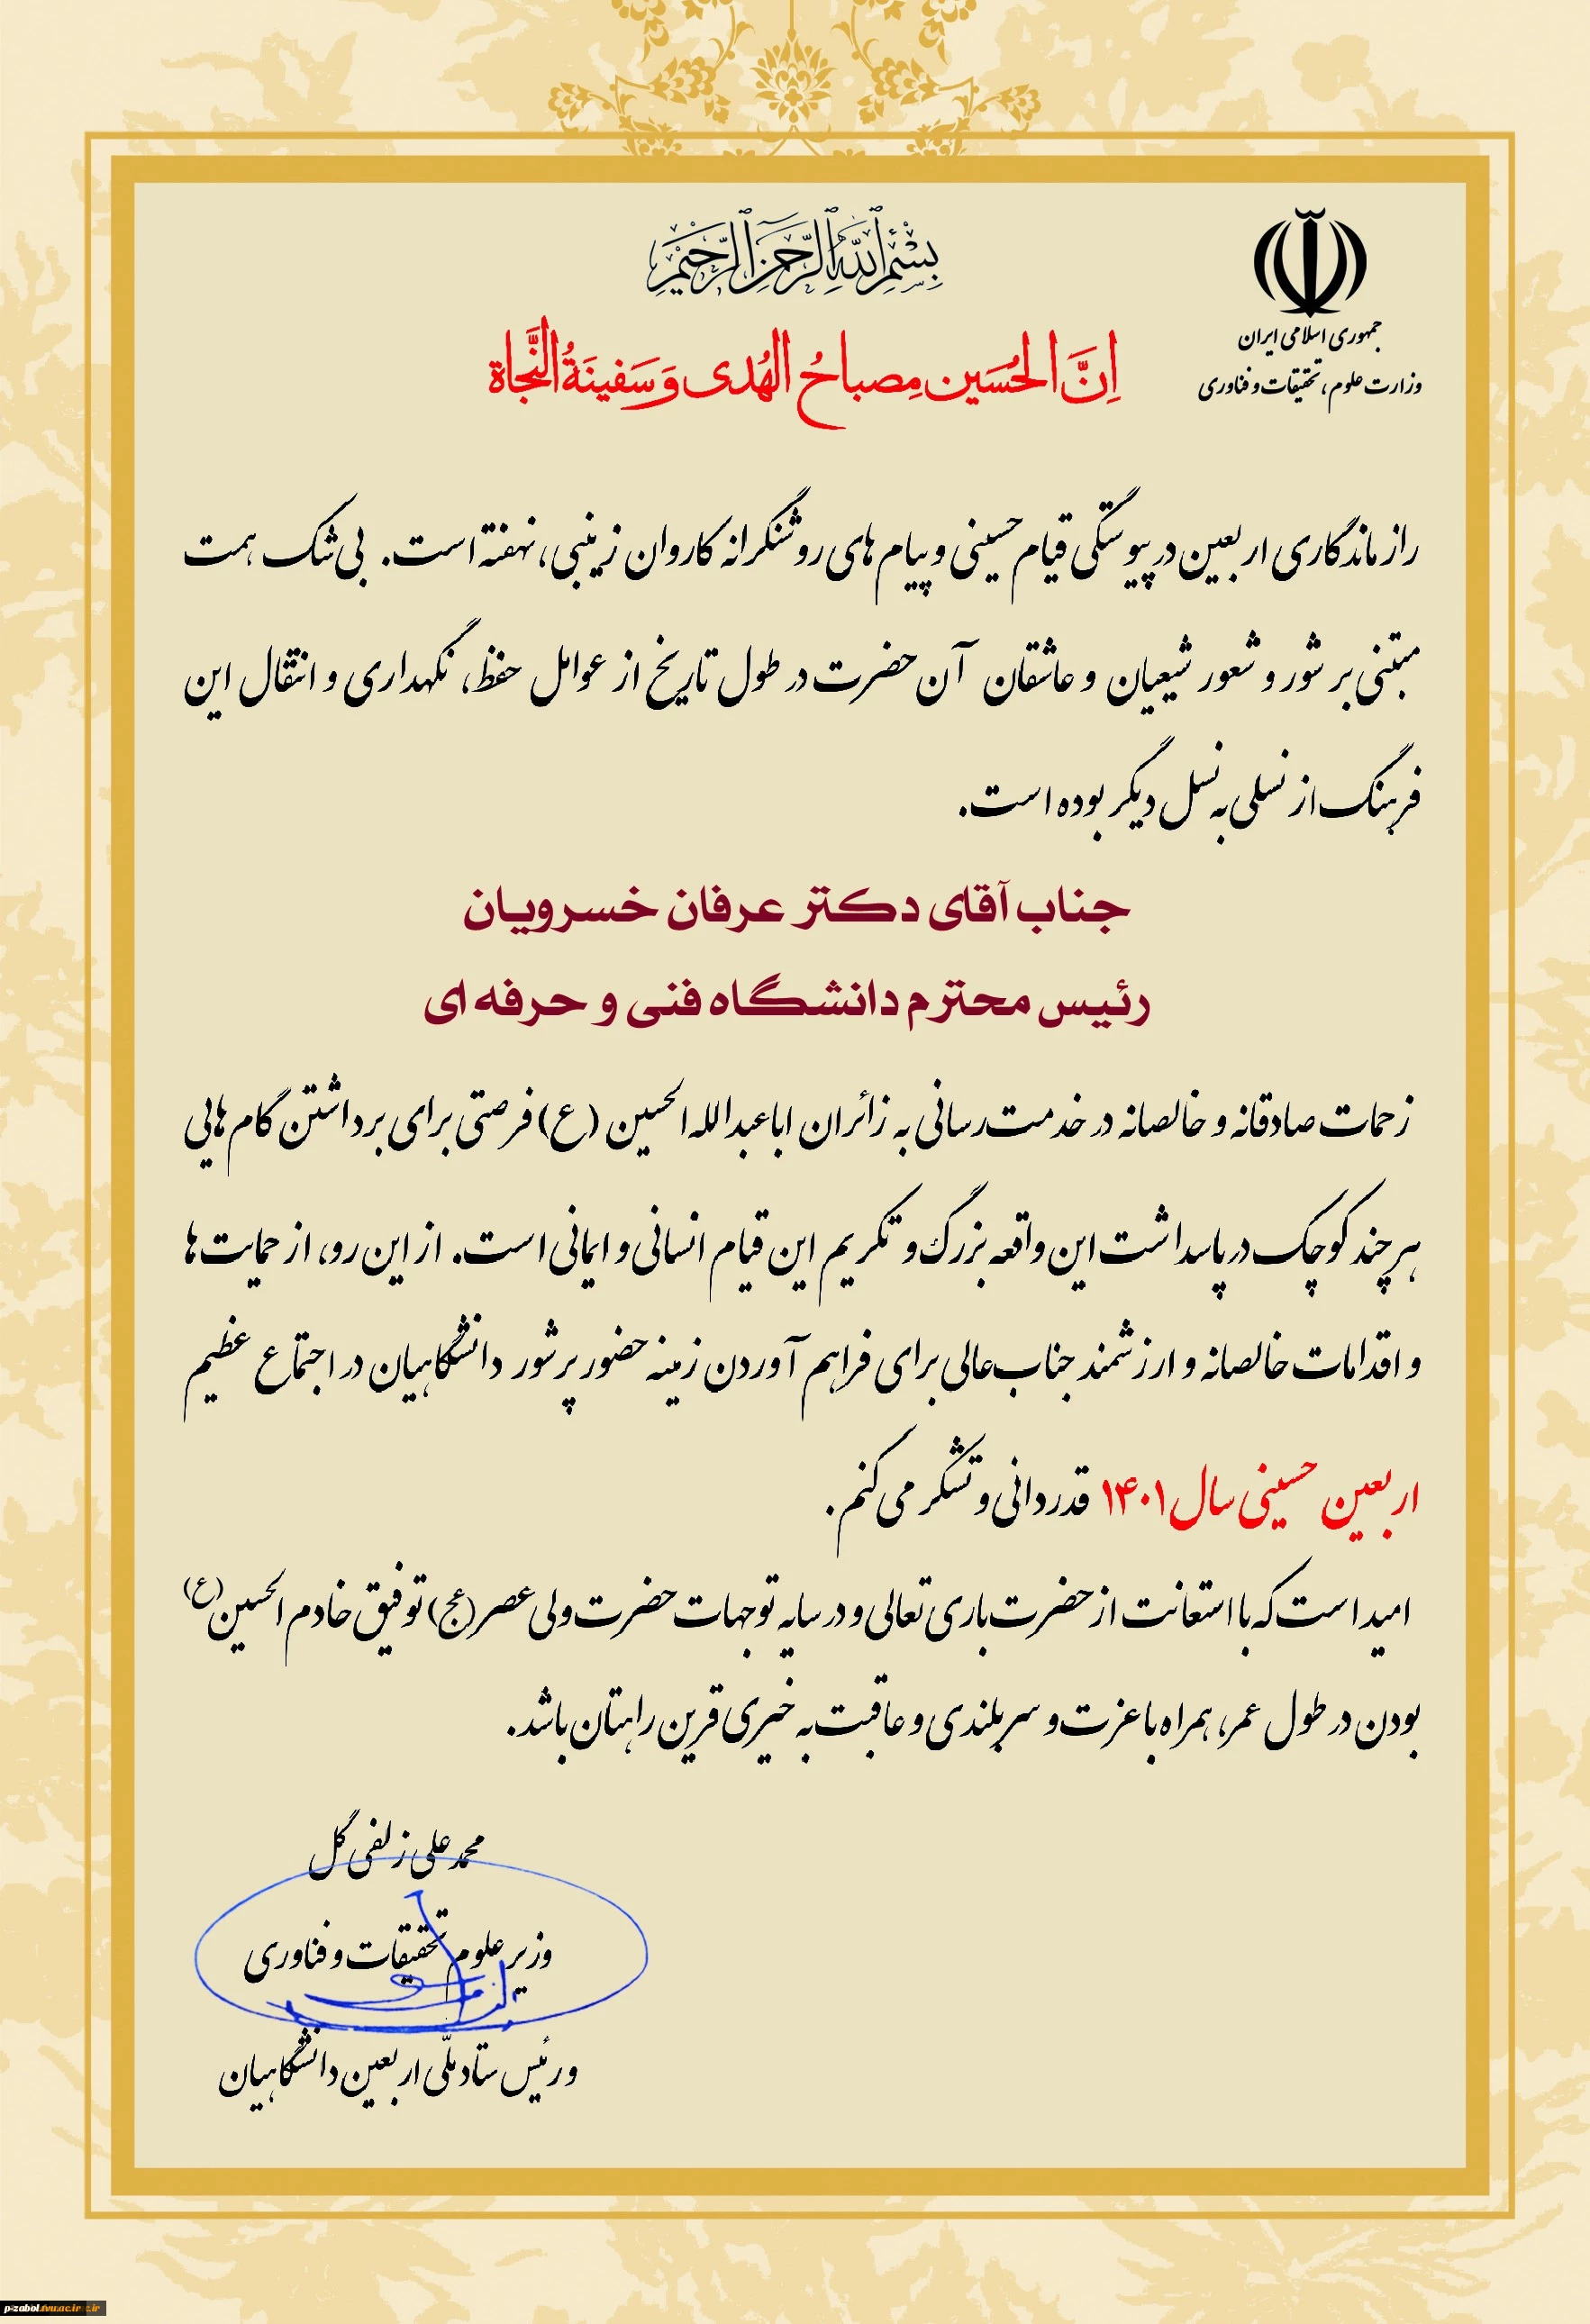 بِسْمِ اللهِ الرَّحْمنِ الرَّحیمِ
جمهوری اسلامی ایران
وزارت علوم، تحقیقات و فناوری
اِنَّ الحُسَین مِصباحُ الهُدی وَ سَفینَةُ النَّجاة
راز ماندگاری اربعین در پیوستگی قیام حسینی و پیام های روشنگرانه کاروان زینبی، نهفته است. بی شک همت
مبتنی بر شور و شعور شیعیان و عاشقان آن حضرت در طول تاریخ از عوامل حفظ، نگهداری و انتقال این
فرهنگ از نسلی به نسل دیگر بوده است.
جناب آقای دکتر عرفان خسرویان
رئیس محترم دانشگاه فنی و حرفه ای
زحمات صادقانه و خالصانه در خدمت رسانی به زائران اباعبدالله الحسین (ع) فرصتی برای برداشتن گام هایی
هر چند کوچک در پاسداشت این واقعه بزرگ و تکریم این قیام انسانی و ایمانی است. از این رو، از حمایت ها
و اقدامات خالصانه و ارزشمند جناب عالی برای فراهم آوردن زمینه حضور پرشور دانشگاهیان در اجتماع عظیم
اربعین حسینی سال ۱۴۰۱ قدردانی و تشکر می کنم.
امید است که با استعانت از حضرت باری تعالی و در سایه توجهات حضرت ولی عصر (عج) توفیق خادم الحسین (ع)
بودن در طول عمر، همراه با عزت و سربلندی و عاقبت به خیری قرین راهتان باشد.
محمد علی زلفی گل
وزیر علوم تحقیقات و فناوری
و رئیس ستاد ملّی اربعین دانشگاهیان
p-zabol.tvu.ac.ir